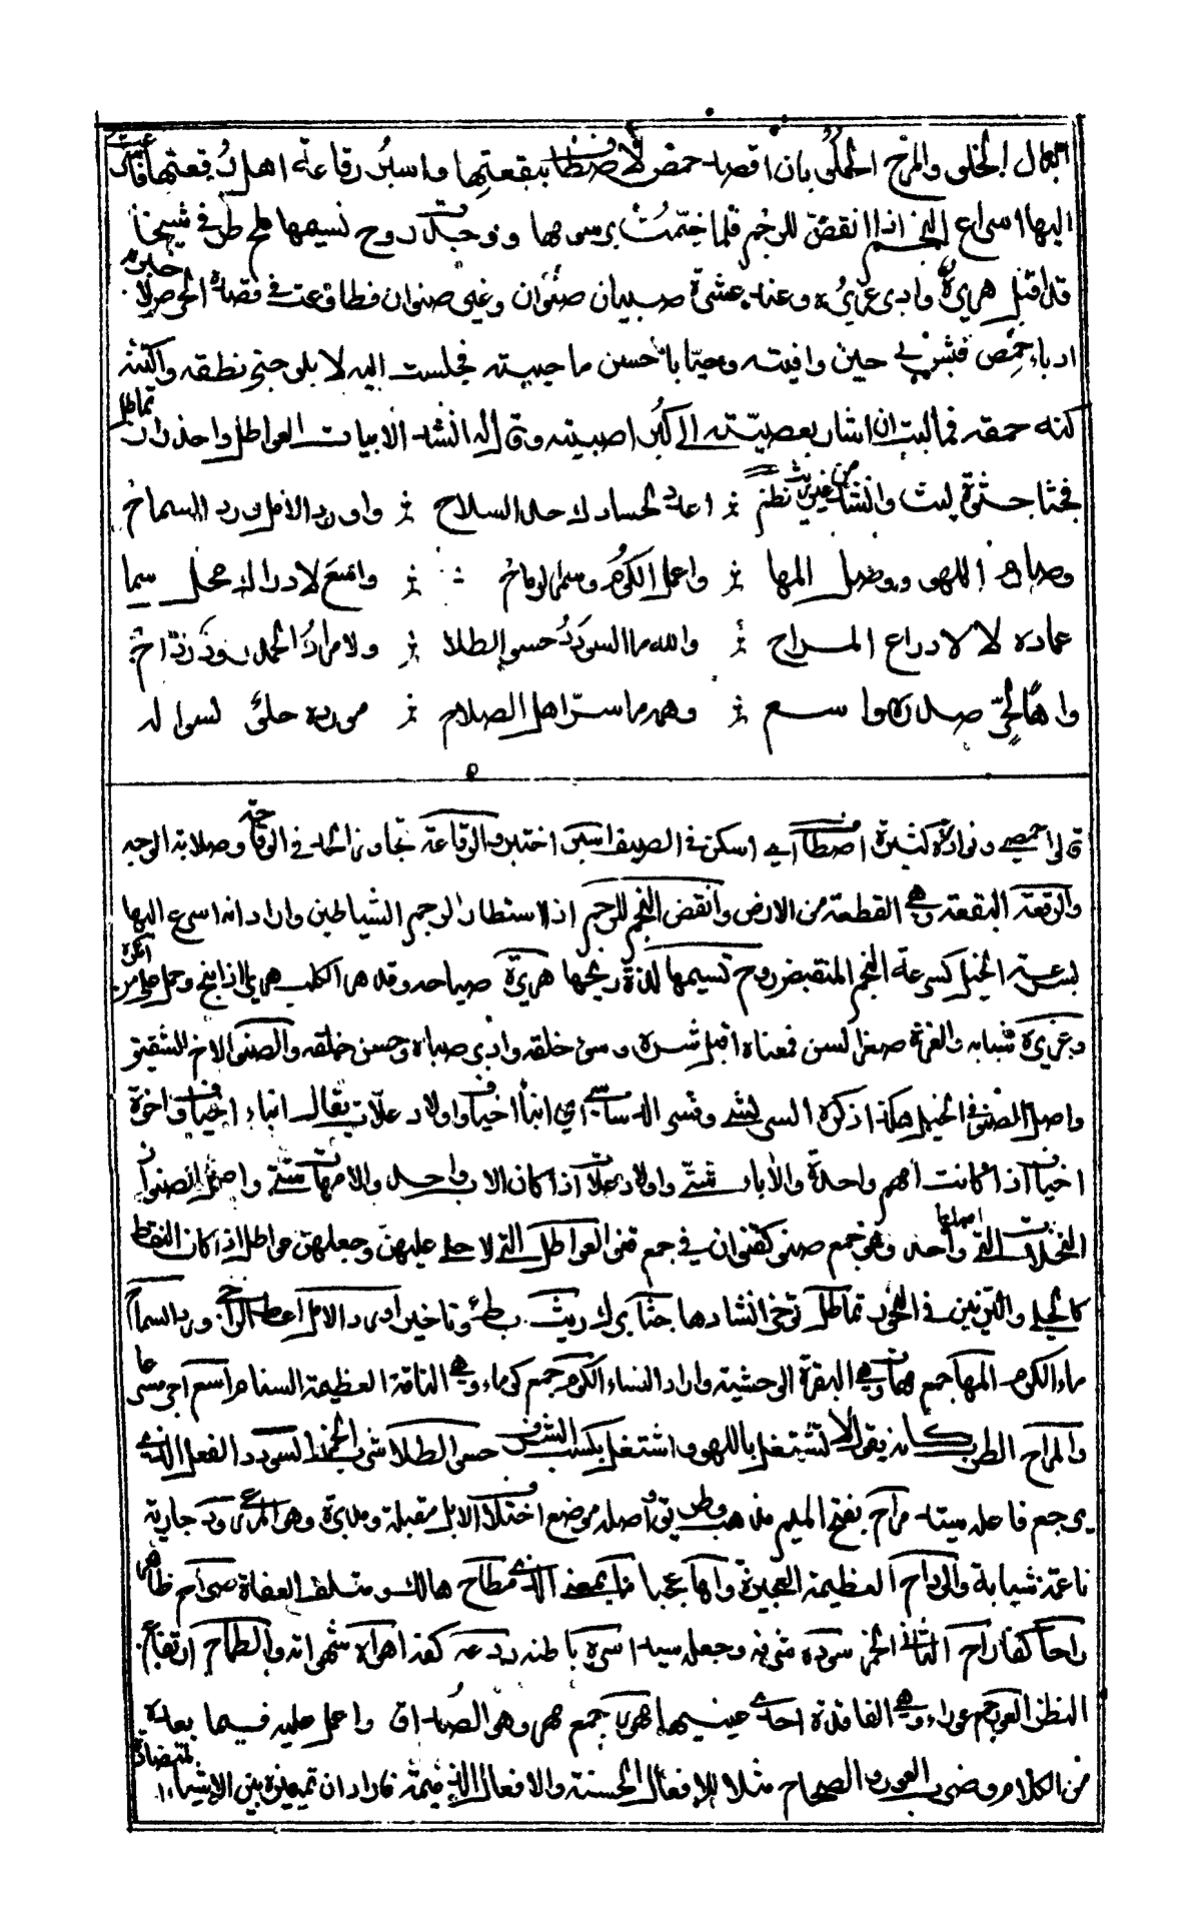 الجمال الخلي والمرح الحلي بان اقصد حمص لاصطاف ببقعتها واسبر رقاعة اهل رقعتها فاسرعت
اليها اسراع النجم اذا انقض للرجم فلما خيمت برسومها ووجدت روح نسيمها لمح طرفي شيخا
قد اقبل هريره وادبر غريره وعنده عشرة صبيان صنوان وغير صنوان فطاوعت في قصده الحرص لاخبر به
ادباء حمص فبش بي حين وافيته وحيا باحسن ما حييته فجلست اليه لابلو جنى نطقه واكتنه
كنه حمقه فما لبث ان اشار بعصيته الى كبر اصيبيته وقال له انشد الابيات العواطل واحذر ان تماطل
فجثا جثوة ليث وانشد من غير ريث نظم اعدد لحسادك حد السلاح واورد الامل ورد السماح
وصارم اللهو ووصل المها واعمل الكوم وسمر الرماح واسع لادراك محل سما
عماده لا لادراع المراح والله ما السودد حسو الطلا ولا مراد الحمد رود رداح
واها لحر صدره واسع وهمه ما سر اهل الصلاح مورده حلو لسواله
قال حميصى ونوادره كثيرة اصطاف اي اسكن في الصيف اسبر اختبر والرقاعة تجاوز الحد في الوقاحة وصلابة الوجه
والرقعة البقعة وهي القطعة من الارض وانقض النجم للرجم اذا استطار لرجم الشياطين واراد انه اسرع اليها
بسرعة الخيل كسرعة النجم المنقبض روح نسيمها لذة ريحها هريره صياحه وقد هر الكلب هريرا اذا نبح وحمل على من انكره
وغريره شبابه والغرة صغر السن فمعناه اقبل شره وسوء خلقه وادبر صباه وحسن خلقه والصنو الاخ الشقيق
واصل الصنو في النخيل هكذا ذكره
اخياف اذا كانت امهم واحدة والآباء شتى واولاد علات اذا كان الاب واحد والامهات شتى واصل الصنوان
النخلات التي اصلها واحد وهو جمع صنو كقنوان في جمع قنو العواطل التي لا حلي عليهن وجعلهن عواطل اذ كان النقط
كالحلي والتزيين في النحور تماطل تؤخر انشادها جثا برك ريث بطء وتاخير اورد الامل اعط الراجي ورد السماح
ماء الكرم المها جمع مهاة وهي البقرة الوحشية واراد النساء الكوم جمع كوماء وهي الناقة العظيمة السنام اسع اجر مسرعا
والمراح الطرب كانه يقول لا تشتغل باللهو واشتغل بكسب الشرف حسو الطلا شرب الخمر السودد الفعل الذي
يرجع فاعله سيدا مراح بفتح الميم مذهب وطريق واصله موضع اختلاف الابل مقبلة ومدبرة وهو المرعى رود جارية
ناعمة شبابة والرداح العظيمة العجيزة واها عجبا ما بمعنى الذي مطاح هالك ومتلف العفاة
راحا كفا راح الثاني الخمر سوده شرفه وجعله سيدا سره باطنه ردعه كفه اهواه شهواته والطماح ارتفاع
النظر العور جمع عوراء وهي الفاقدة احدى عينيها مهور جمع مهر وهو الصداق واعمل عليه فيما بعده
من الكلام وضرب العور والصحاح مثلا للافعال الحسنة والافعال الذميمة فاراد ان تمييزه بين الاشياء